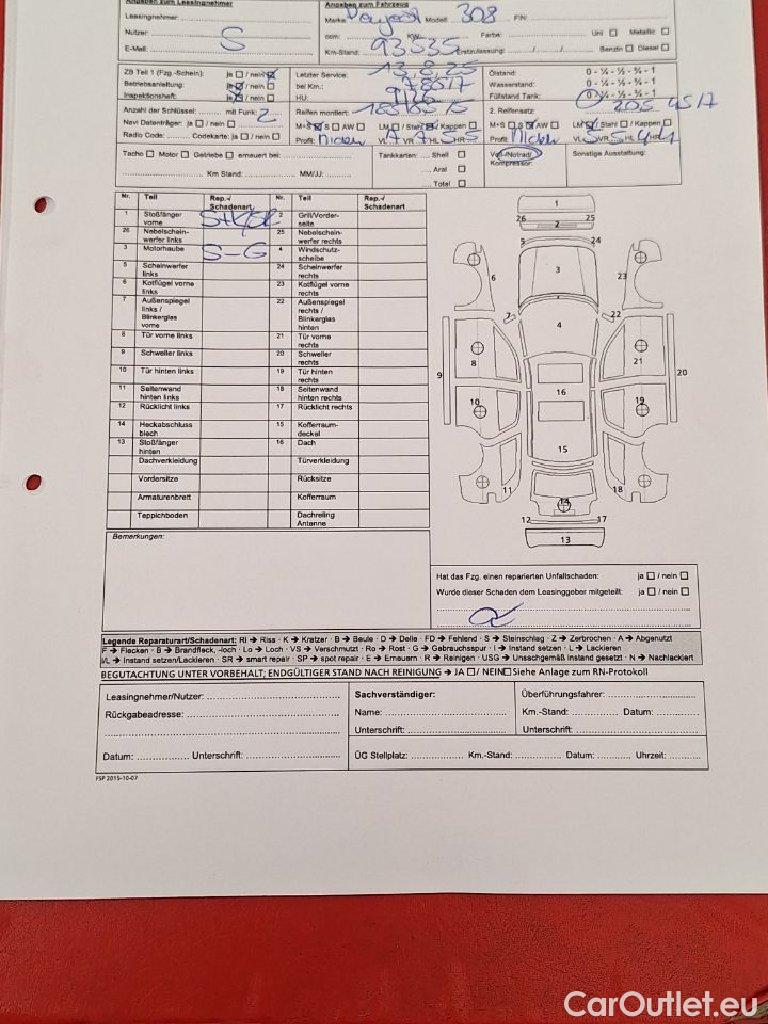 Angaben zum Leasingnehmer
Angaben zum Fahrzeug
Leasingnehmer:
Marke Peugeot Modell 308 FIN:
Nutzer: S
ccm: KW: Farbe: Uni Metallic
E-Mail:
Km-Stand: 93535 Erstzulassung: / / Benzin Diesel
ZB Teil 1 (Fzg.-Schein): ja / nein
Betriebsanleitung: ja / nein
Inspektionsheft: ja / nein
Letzter Service: 13.8.25
bei Km.: 78517
HU:
Ölstand: 0 - ¼ - ½ - ¾ - 1
Wasserstand: 0 - ¼ - ½ - ¾ - 1
Füllstand Tank: 0 - ¼ - ½ - ¾ - 1
Anzahl der Schlüssel: mit Funk: 2
Navi Datenträger: ja / nein
Radio Code: Codekarte: ja / nein
Reifen montiert:
M+S S AW LM / Stahl / Kappen
Profil: VL 7 VR 7 HL 5 HR 5
2. Reifensatz: 205 4517
M+S S AW LM / Stahl / Kappen
Profil: VL 5 VR 5 HL 4 HR 4
Tacho Motor Getriebe erneuert bei:
Km Stand: MM/JJ:
Tankkarten: Shell
Aral
Total
Voll-/Notrad/
Kompressor:
Sonstige Ausstattung:
Nr. Teil Rep.-/ Schadenart Nr. Teil Rep.-/ Schadenart
1 Stoßfänger vorne 2 Grill/Vorderseite
26 Nebelscheinwerfer links 25 Nebelscheinwerfer rechts
3 Motorhaube S-G 4 Windschutzscheibe
5 Scheinwerfer links 24 Scheinwerfer rechts
6 Kotflügel vorne links 23 Kotflügel vorne rechts
7 Außenspiegel links / Blinkerglas vorne 22 Außenspiegel rechts / Blinkerglas hinten
8 Tür vorne links 21 Tür vorne rechts
9 Schweller links 20 Schweller rechts
10 Tür hinten links 19 Tür hinten rechts
11 Seitenwand hinten links 18 Seitenwand hinten rechts
12 Rücklicht links 17 Rücklicht rechts
14 Heckabschluss blech 15 Kofferraumdeckel
13 Stoßfänger hinten 16 Dach
Dachverkleidung Türverkleidung
Vordersitze Rücksitze
Armaturenbrett Kofferraum
Teppichboden Dachreling Antenne
1
26 25
2
5 24
6 3 23
7 22
4
8 21
9 20
16
10 19
15
11 18
14
12 17
13
Bemerkungen:
Hat das Fzg. einen reparierten Unfallschaden: ja / nein
Wurde dieser Schaden dem Leasinggeber mitgeteilt: ja / nein
Legende Reparaturart/Schadenart: RI → Riss · K → Kratzer · B → Beule · D → Delle · FD → Fehlend · S → Steinschlag · Z → Zerbrochen · A → Abgenutzt
F → Flecken · B → Brandfleck, -loch · Lo → Loch · VS → Verschmutzt · Ro → Rost · G → Gebrauchsspur · I → Instand setzen · L → Lackieren
I/L → Instand setzen/Lackieren · SR → smart repair · SP → spot repair · E → Erneuern · R → Reinigen · USG → Unsachgemäß instand gesetzt · N → Nachlackiert
BEGUTACHTUNG UNTER VORBEHALT; ENDGÜLTIGER STAND NACH REINIGUNG → JA / NEIN Siehe Anlage zum RN-Protokoll
Leasingnehmer/Nutzer:
Rückgabeadresse:
Datum: Unterschrift:
Sachverständiger:
Name:
Unterschrift:
Überführungsfahrer:
Km.-Stand: Datum:
Unterschrift:
ÜG Stellplatz: Km.-Stand: Datum: Uhrzeit:
FSP 2015-10-08
CarOutlet.eu